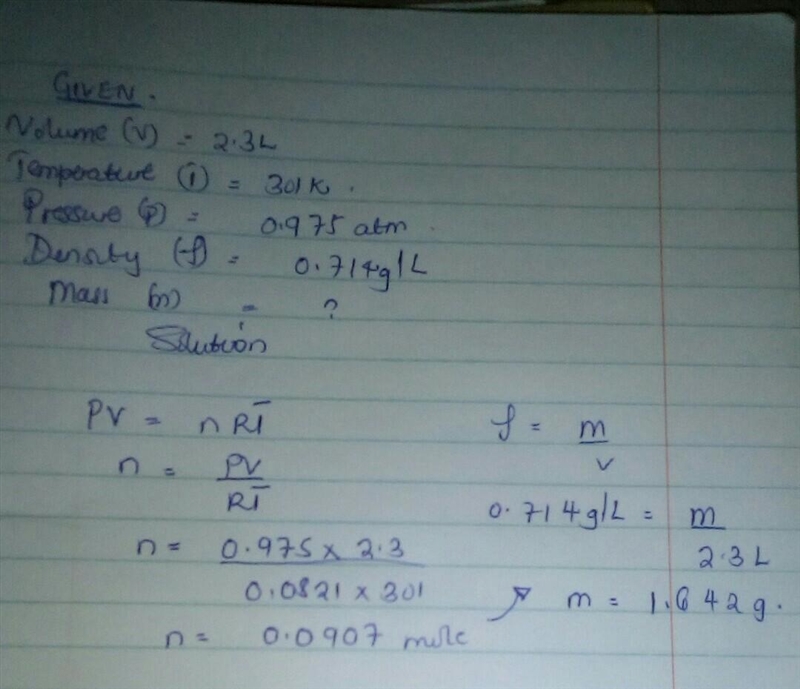 GIVEN.
Volume (V) = 2.3L
Temperature (T) = 301K.
Pressure (P) = 0.975 atm.
Density (ρ) = 0.714g/L
Mass (m) = ?
Solution
PV = nRT
n = PV
RT
n = 0.975 x 2.3
0.0821 x 301
n = 0.0907 mole
ρ = m
v
0.714g/L = m
2.3L
m = 1.642g.